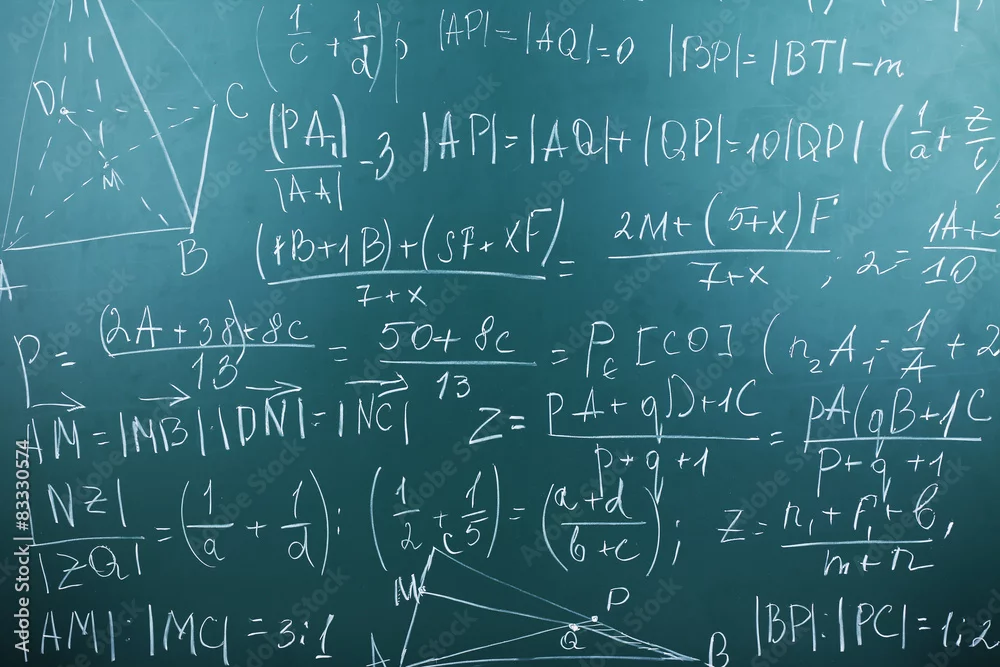 (1/c + 1/d) p |AP| = |AQ| = 0 |BP| = |BT| - m
D C
(PA₁)/|AA| = 3 |AP| = |AQ| + |QP| = 10|QP| (1/a + z/
M
((1B+1B)+(SF+XF)/7+x = 2M+(5+x)F/7+x ; 2 = 1A+3/10
B
A
P = (2A+38)+8c/13 = 50+8c/13 = P [CO] (n₂A₁ = 1/A + 2
AM = |MB| |DN| = |NC| Z = pA+qD+1C/p+q+1 = pA(qB+1C/p+q+1
NZ|/|ZQ| = (1/a + 1/d) : (1/2 + 1/5) = (a+d/b+c) ; Z = n₁+F₁+b/m+n ,
C
M
P
Q
AM| : |MC| = 3:1 A B |BP| : |PC| = 1:2
Adobe Stock | #83330574